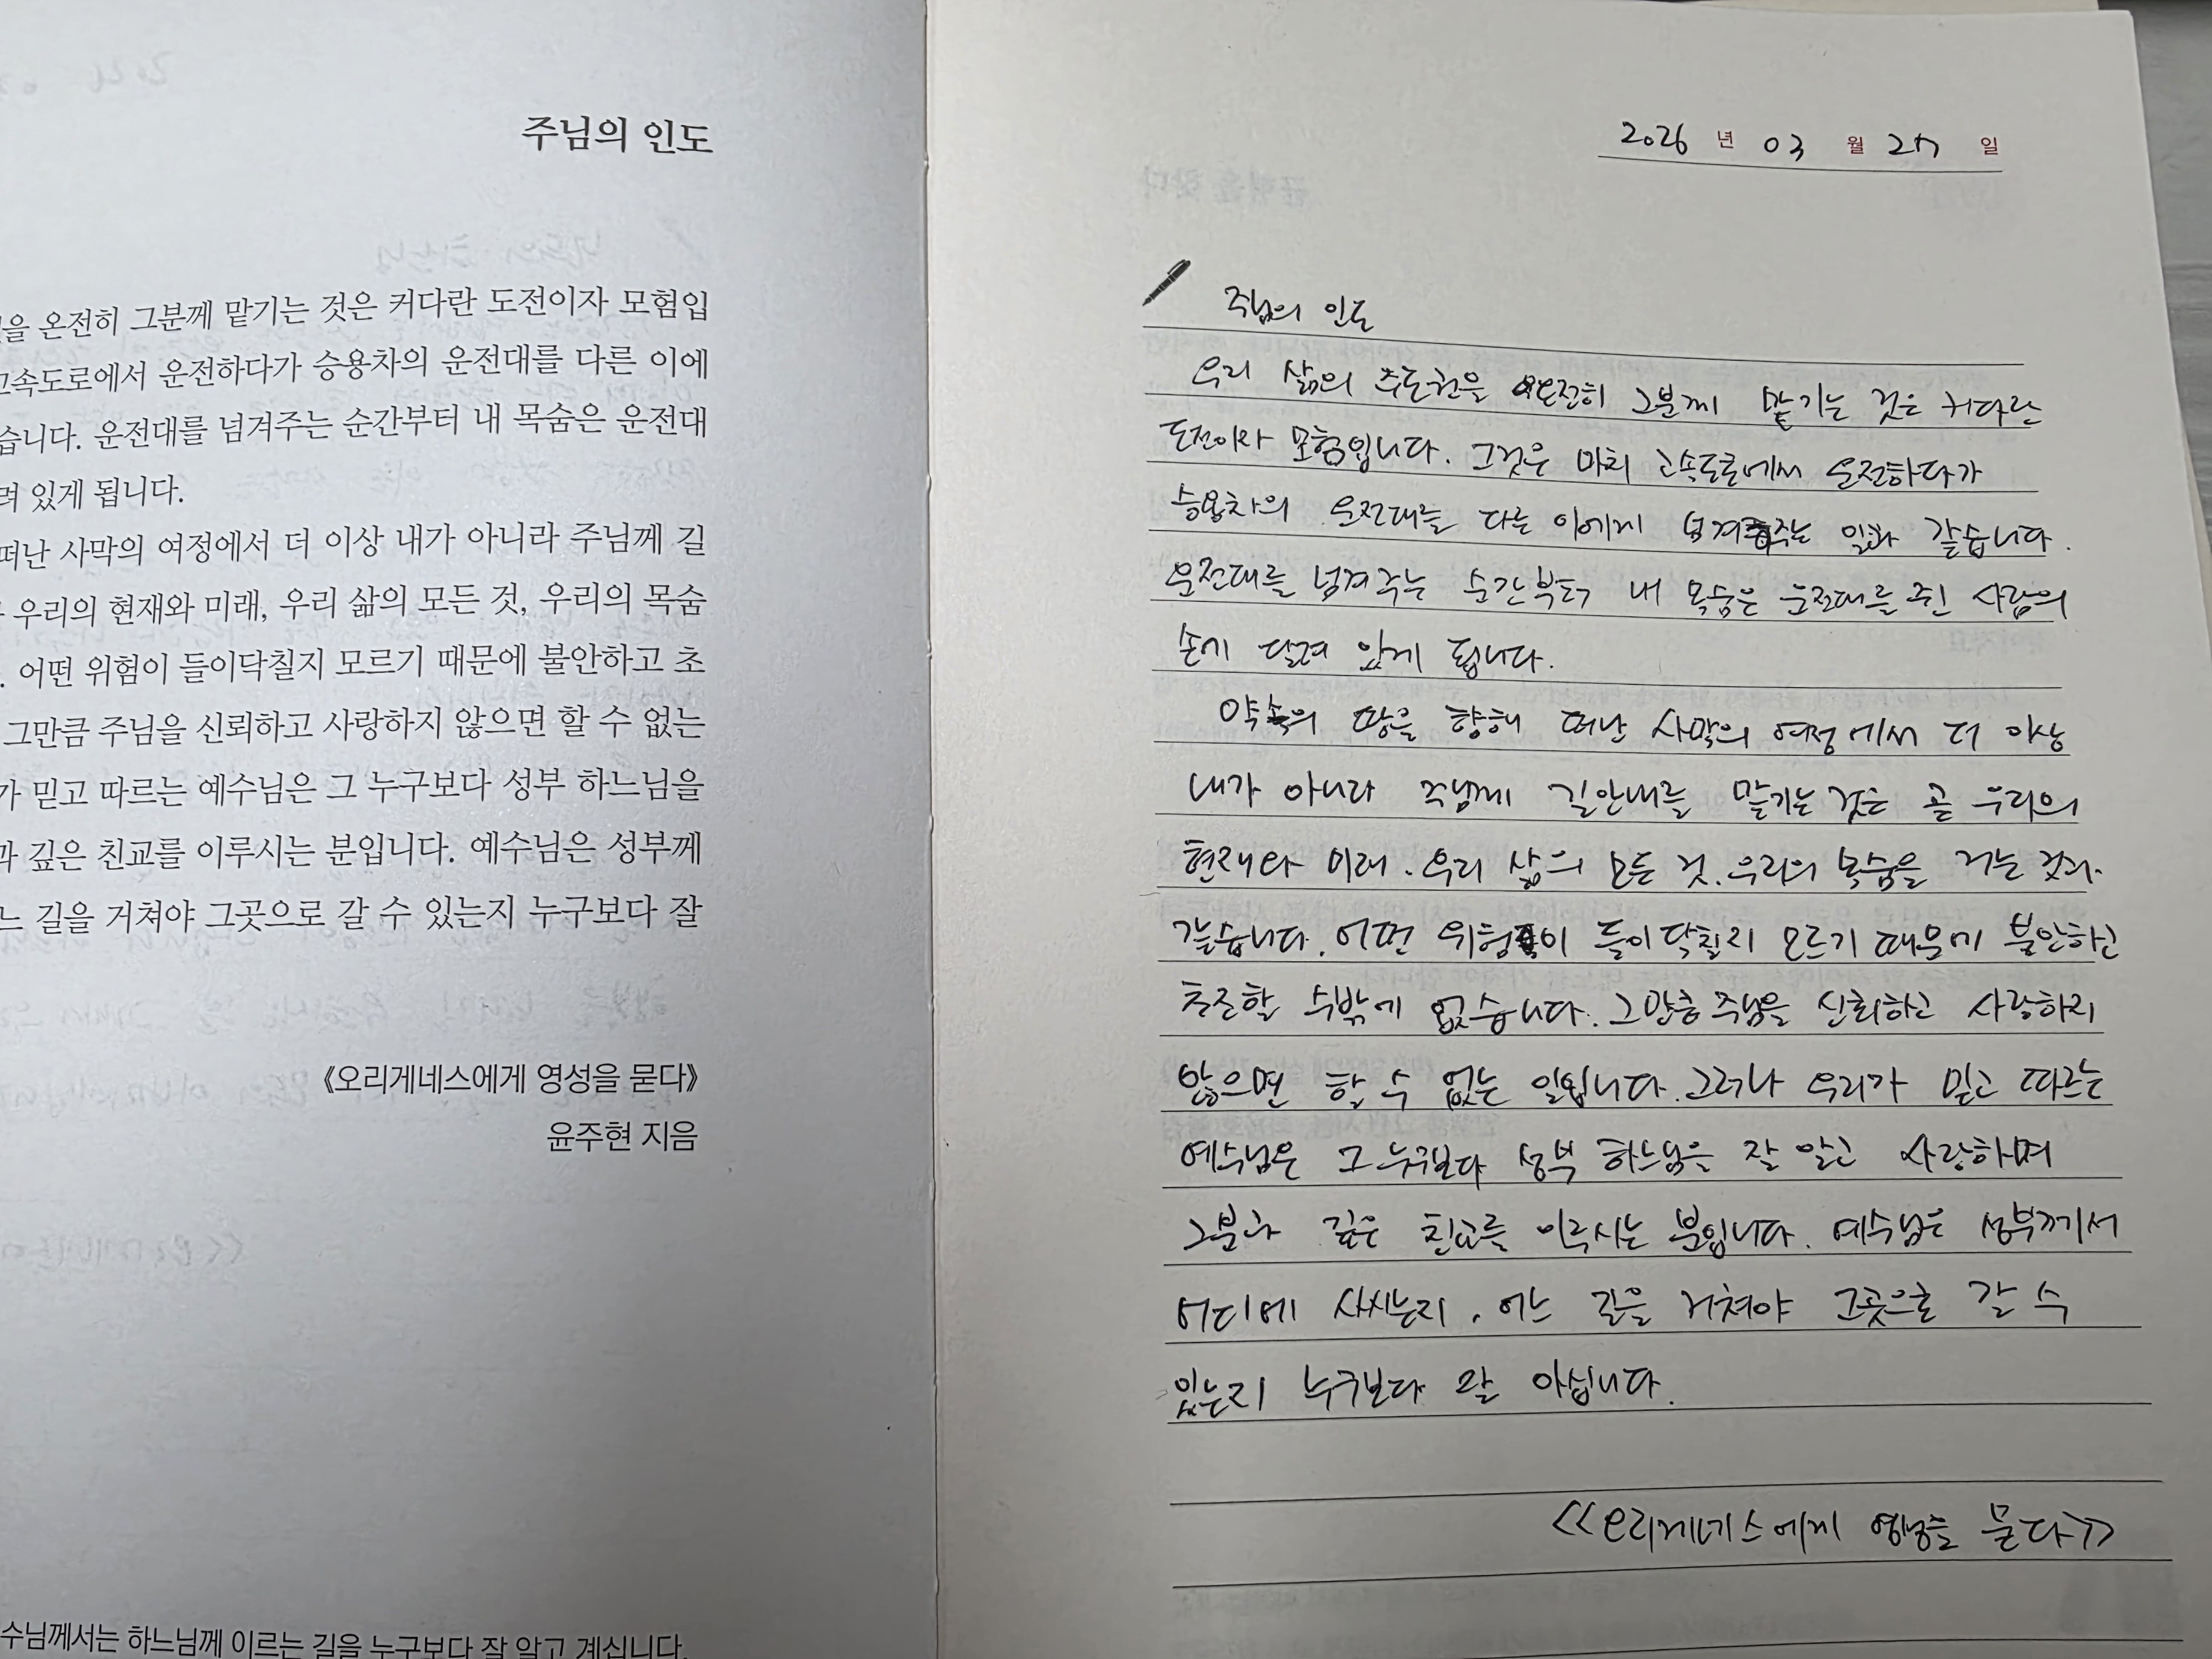 주님의 인도
온전히 그분께 맡기는 것은 커다란 도전이자 모험입
고속도로에서 운전하다가 승용차의 운전대를 다른 이에
습니다. 운전대를 넘겨주는 순간부터 내 목숨은 운전대
려 있게 됩니다.
떠난 사막의 여정에서 더 이상 내가 아니라 주님께 길
우리의 현재와 미래, 우리 삶의 모든 것, 우리의 목숨
. 어떤 위험이 들이닥칠지 모르기 때문에 불안하고 초
그만큼 주님을 신뢰하고 사랑하지 않으면 할 수 없는
가 믿고 따르는 예수님은 그 누구보다 성부 하느님을
과 깊은 친교를 이루시는 분입니다. 예수님은 성부께
느 길을 거쳐야 그곳으로 갈 수 있는지 누구보다 잘
《오리게네스에게 영성을 묻다》
윤주현 지음
수님께서는 하느님께 이르는 길을 누구보다 잘 알고 계십니다.
2026 년 03 월 27 일
주님의 인도
우리 삶의 주도권을 온전히 그분께 맡기는 것은 커다란
도전이자 모험입니다. 그것은 마치 고속도로에서 운전하다가
승용차의 운전대를 다른 이에게 넘겨주는 일과 같습니다.
운전대를 넘겨주는 순간부터 내 목숨은 운전대를 쥔 사람의
손에 달려 있게 됩니다.
약속의 땅을 향해 떠난 사막의 여정에서 더 이상
내가 아니라 주님께 길안내를 맡기는 것은 곧 우리의
현재와 미래, 우리 삶의 모든 것, 우리의 목숨을 거는 것과
같습니다. 어떤 위험이 들이닥칠지 모르기 때문에 불안하고
초조할 수밖에 없습니다. 그만큼 주님을 신뢰하고 사랑하지
않으면 할 수 없는 일입니다. 그러나 우리가 믿고 따르는
예수님은 그 누구보다 성부 하느님을 잘 알고 사랑하며
그분과 깊은 친교를 이루시는 분입니다. 예수님은 성부께서
어디에 사시는지, 어느 길을 거쳐야 그곳으로 갈 수
있는지 누구보다 잘 아십니다.
<<오리게네스에게 영성을 묻다>>